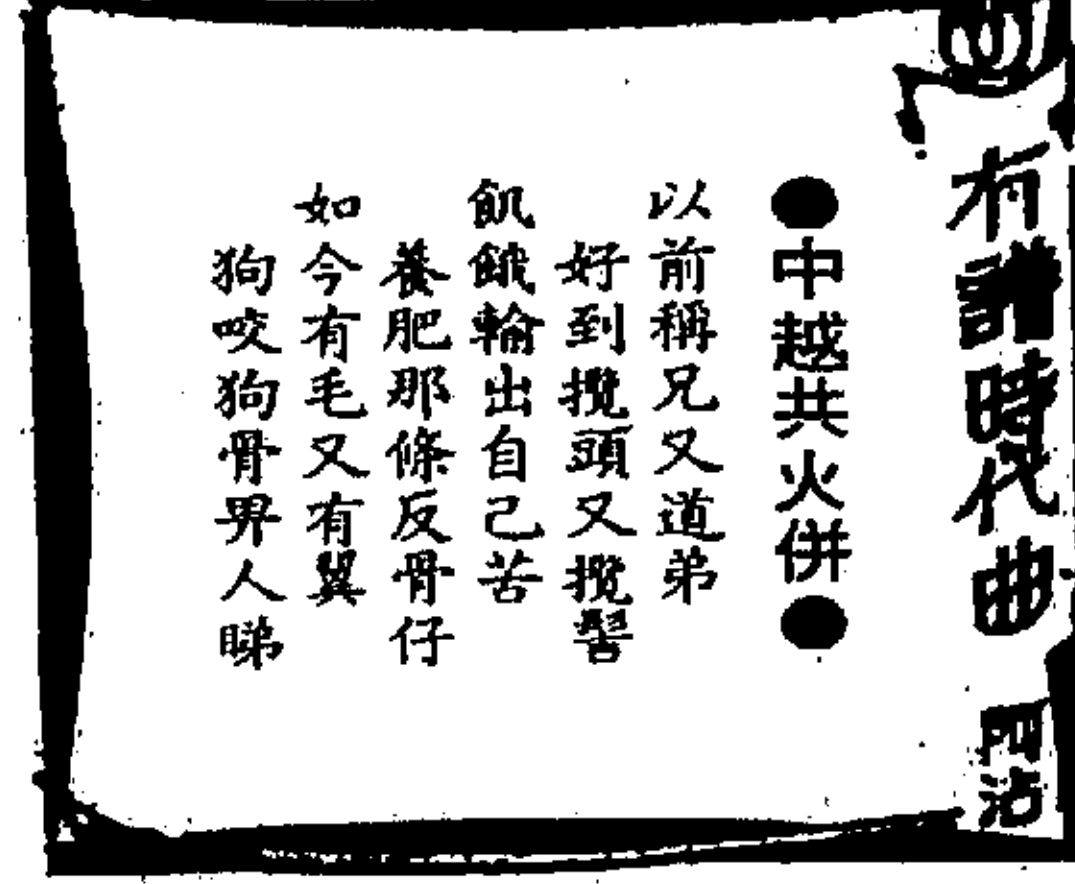 有譜時代曲
阿沾
●中越共火併●
以前稱兄又道弟
好到攬頭又攬髻
飢餓輸出自己苦
養肥那條反骨仔
如今有毛又有翼
狗咬狗骨畀人睇